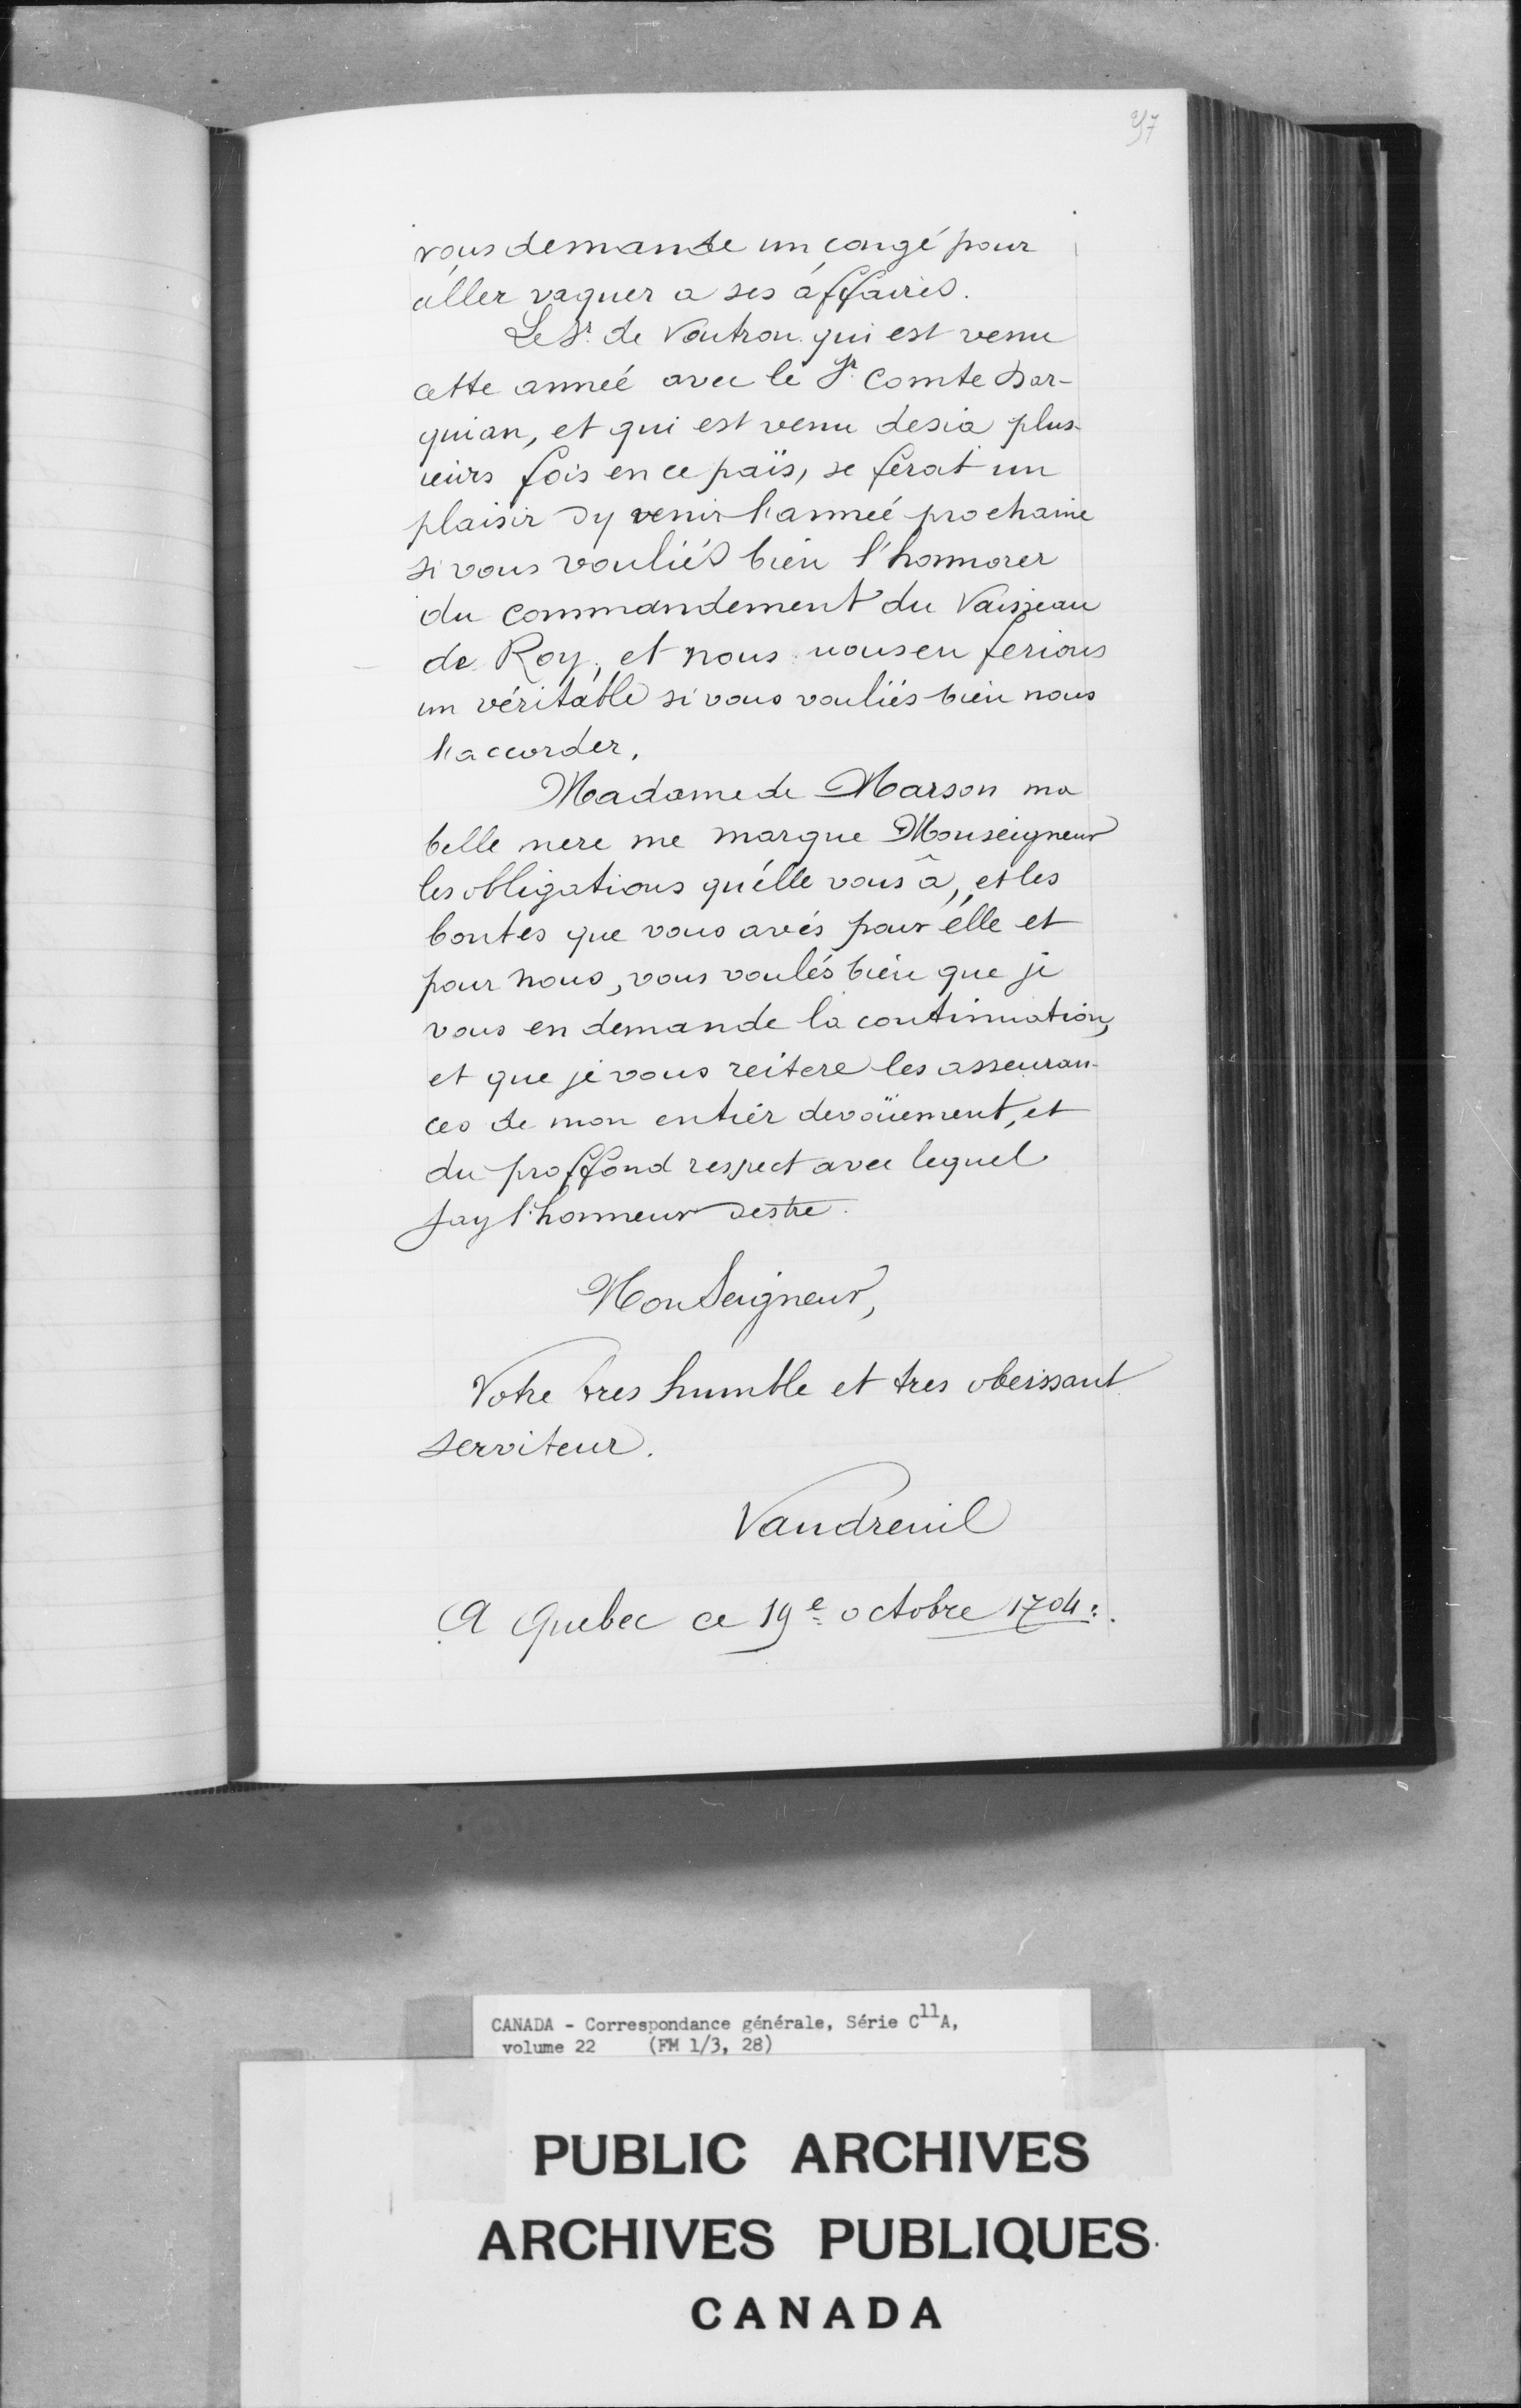 vous demande un congé pour
aller vaquer a ses affaires.
Le Sr. de Voutron qui est venu
cette anneé avec le Sr. Comte Dar-
quian, et qui est venu desia plus-
ieurs fois en ce païs, se ferat un
plaisir dy venir l'anneé prochaine
si vous vouliés bien l'honnorer
du commandement du Vaisseau
de Roy, et nous nous en ferions
un véritable si vous vouliés bien nous
l'accorder.
Madame de Marson ma
belle mere me marque Monseigneur
les obligations qu'elle vous â, et les
bontés que vous avés pour elle et
pour nous, vous voulés bien que je
vous en demande la continuation,
et que je vous reitere les asseuran-
ces de mon entier devoüement, et
du proffond respect avec lequel
Jay l'honneur destre.
MonSeigneur,
Votre tres humble et tres obeissant
serviteur.
Vaudreuil
A Quebec ce 19e octobre 1704.
CANADA - Correspondance générale, Série C11A,
volume 22 (FM 1/3, 28)
PUBLIC ARCHIVES
ARCHIVES PUBLIQUES
CANADA